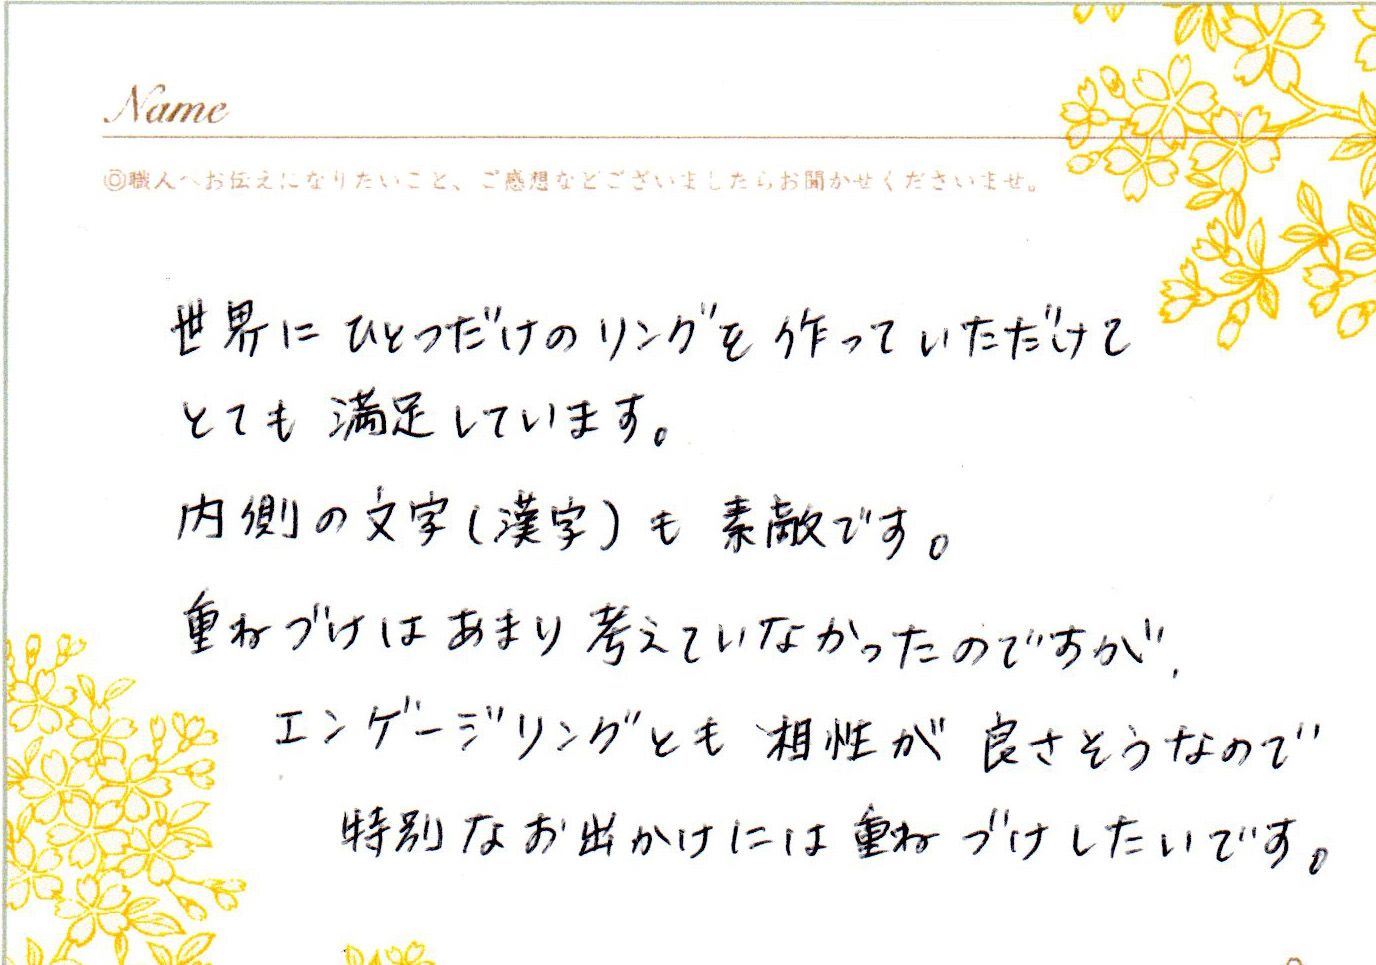 Name
◎職人へお伝えになりたいこと、ご感想などございましたらお聞かせくださいませ。
世界にひとつだけのリングを作っていただけて
とても満足しています。
内側の文字(漢字)も素敵です。
重ねづけはあまり考えていなかったのですが、
エンゲージリングとも相性が良さそうなので
特別なお出かけには重ねづけしたいです。